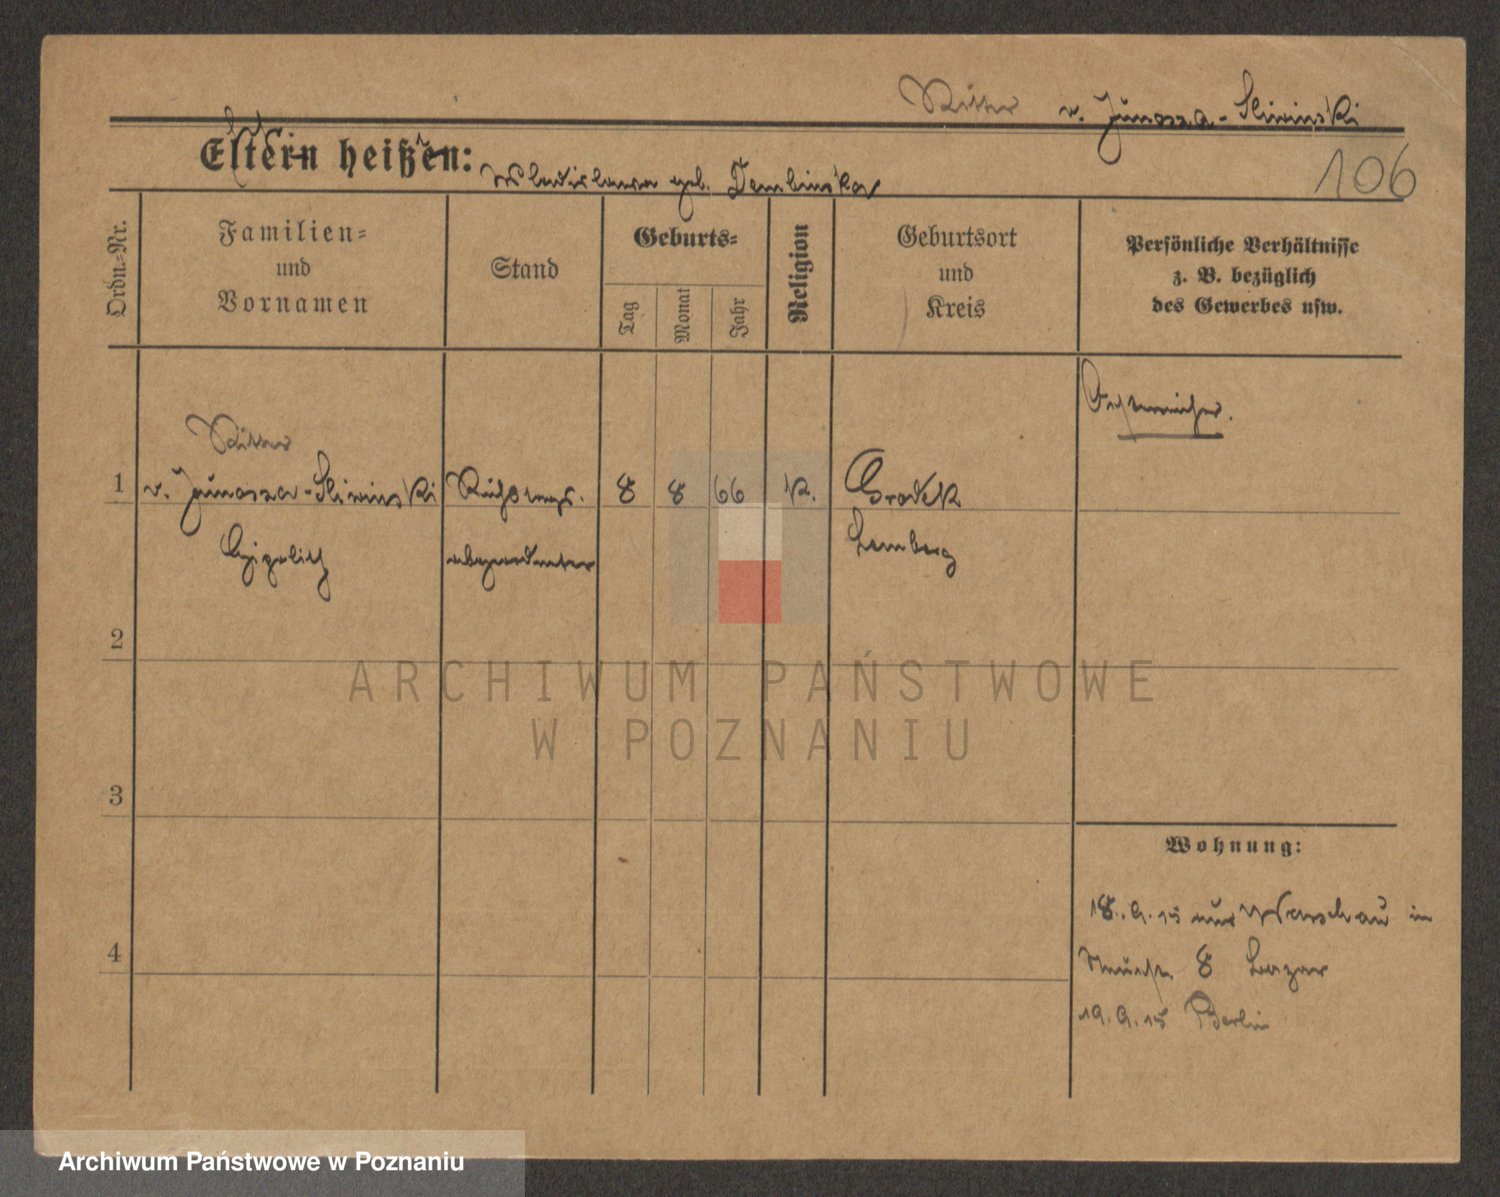 Ritter v. Junosza-Sliwinski
106
Eltern heißen:
Wladislawa geb. Dembinska
Ordn.-Nr.
Familien-
und
Vornamen
Stand
Geburts-
Tag
Monat
Jahr
Religion
Geburtsort
und
Kreis
Persönliche Verhältnisse
z. B. bezüglich
des Gewerbes usw.
Oesterreicher.
Ritter
1 v. Junosza-Sliwinski Reichstags- 8 8 66 K. Grodek
abgeordneter Lemberg
2
3
4
Wohnung:
18.9.15 aus Warschau in
8 Bazar
19.9.15 Berlin
ARCHIWUM PAŃSTWOWE
W POZNANIU
Archiwum Państwowe w Poznaniu